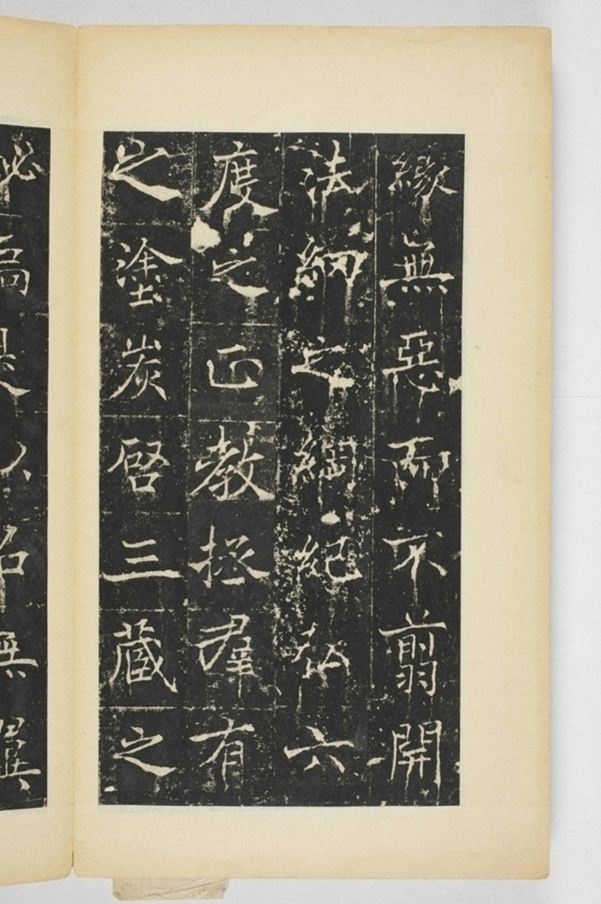 緣無惡而不翦開
法網之綱紀弘六
度之正教拯群有
之塗炭啓三藏之
秘扃是以名無翼